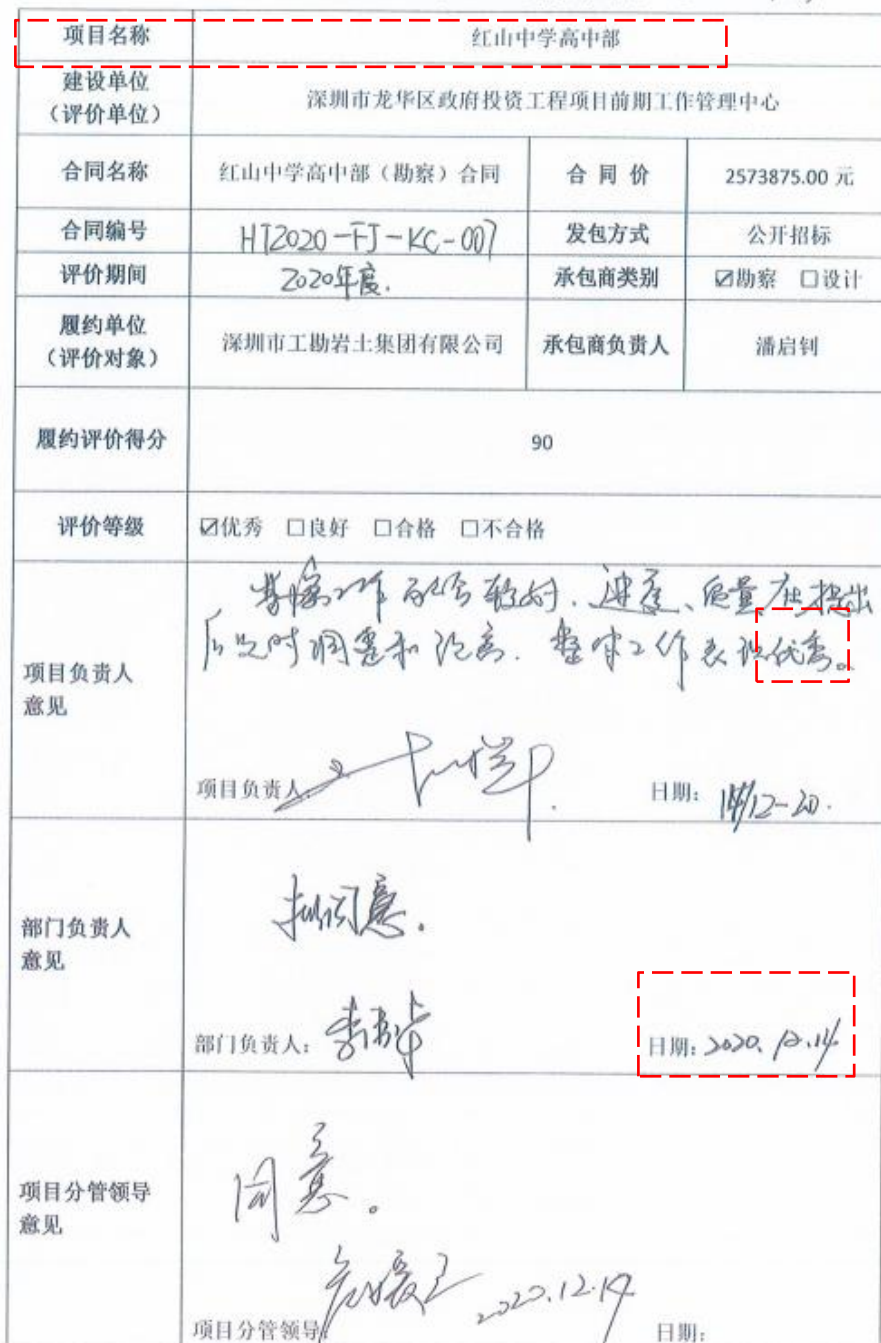 项目名称 红山中学高中部
建设单位
（评价单位） 深圳市龙华区政府投资工程项目前期工作管理中心
合同名称 红山中学高中部（勘察）合同 合 同 价 2573875.00 元
合同编号 HT2020-FJ-KC-007 发包方式 公开招标
评价期间 2020年度. 承包商类别 ☑勘察 □设计
履约单位
（评价对象） 深圳市工勘岩土集团有限公司 承包商负责人 潘启钊
履约评价得分 90
评价等级 ☑优秀 □良好 □合格 □不合格
勘察工作配合较好、进度、质量在提出
后及时调整和完善. 整体工作表现优秀。
项目负责人
意见
项目负责人: 日期: 14/12-20.
拟同意.
部门负责人
意见
部门负责人: 日期: 2020.12.14
同意。
项目分管领导
意见
项目分管领导: 2020.12.14 日期: